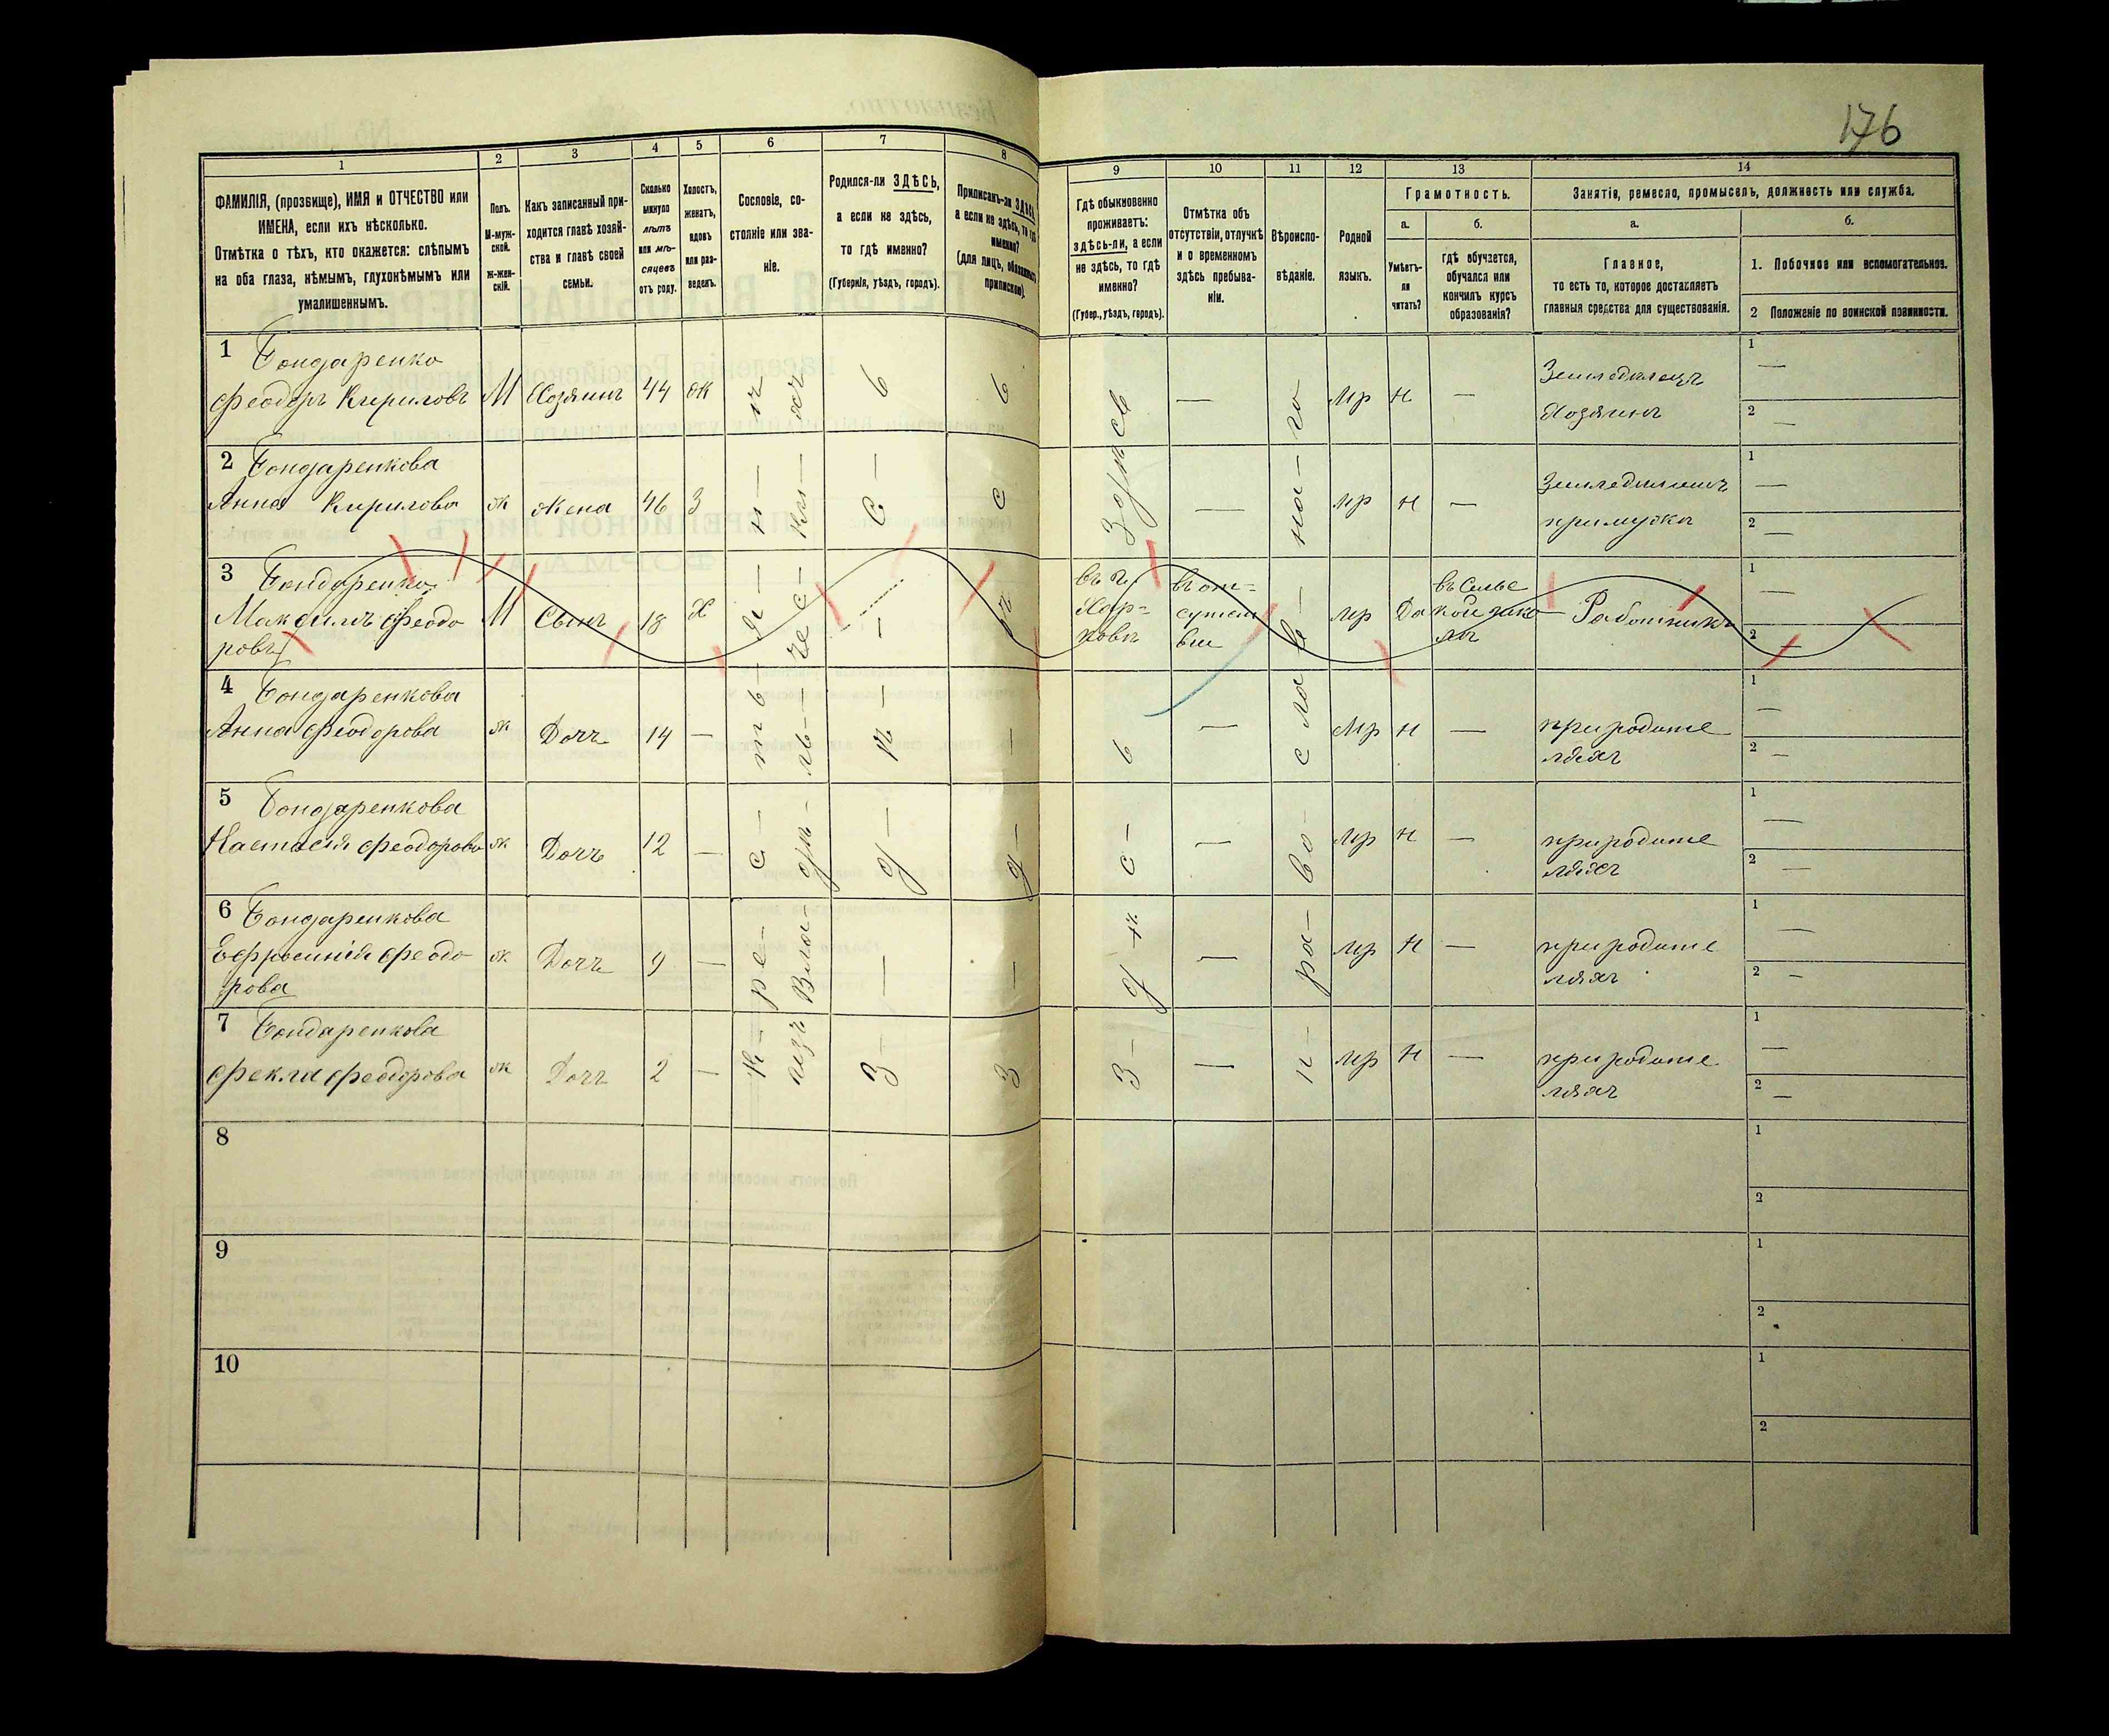 176
1
2
3
4
5
6
7
8
9
10
11
12
13
14
ФАМИЛІЯ, (прозвище), ИМЯ и ОТЧЕСТВО или
ИМЕНА, если ихъ нѣсколько.
Отмѣтка о тѣхъ, кто окажется: слѣпымъ
на оба глаза, нѣмымъ, глухонѣмымъ или
умалишеннымъ.
Полъ.
М-муж-
ской.
Ж-жен-
скій.
Какъ записанный при-
ходится главѣ хозяй-
ства и главѣ своей
семьи.
Сколько
минуло
лѣтъ
или мѣ-
сяцевъ
отъ роду.
Холостъ,
женатъ,
вдовъ
или раз-
веденъ.
Сословіе, со-
стояніе или зва-
ніе.
Родился-ли ЗДѢСЬ,
а если не здѣсь,
то гдѣ именно?
(Губернія, уѣздъ, городъ).
Приписанъ-ли ЗДѢСЬ,
а если не здѣсь, то гдѣ
именно?
(для лицъ, обязанныхъ
припиской)
Гдѣ обыкновенно
проживаетъ:
здѣсь-ли, а если
не здѣсь, то гдѣ
именно?
(Губер., уѣздъ, городъ).
Отмѣтка объ
отсутствіи, отлучкѣ
и о временномъ
здѣсь пребыва-
ніи.
Вѣроиспо-
вѣданіе.
Родной
языкъ.
Грамотность.
а.
Умѣетъ-
ли
читать?
б.
гдѣ обучается,
обучался или
кончилъ курсъ
образованія?
Занятія, ремесло, промыселъ, должность или служба.
а.
Главное,
то есть то, которое доставляетъ
главныя средства для существованія.
б.
1. Побочное или вспомогательное.
2 Положеніе по воинской повинности.
1 Бондаренко
Феодоръ Кириловъ М Хозяинъ 44 ж — мр н — Земледѣлецъ
Хозяинъ
1 —
2 —
2 Бондаренкова
Анна Кирилова ж жена 46 З — мр н —
при мужѣ
1 —
2 —
3 Бондаренко
Максимъ Феодо
ровъ М Сынъ 18 Х
въ г.
Харь-
ковѣ
въ от-
сутст
віи
мр Да
въ Сельс
кой шко
лѣ
Работникъ
1 —
2 —
4 Бондаренкова
Анна Феодорова ж Дочь 14 — — мр н — при родите
ляхъ
1 —
2 —
5 Бондаренкова
Настасія Феодорова ж Дочь 12 — — мр н — при родите
ляхъ
1 —
2 —
6 Бондаренкова
Ефросинія Феодо
рова ж Дочь 9 — — мр н — при родите
ляхъ
1 —
2 —
7 Бондаренкова
Фекла Феодорова ж Дочь 2 — — мр н — при родите
ляхъ
1 —
2 —
Кре-с-тья-нъ
изъ Вла-дѣ-ль-че-с-ки-хъ
З-д-ѣ-с-ь
З-д-ѣ-с-ь
Здѣсь
З-д-ѣ-с-ь
п-ра-во-сла-в-на-го
8
1
2
9
1
2
10
1
2